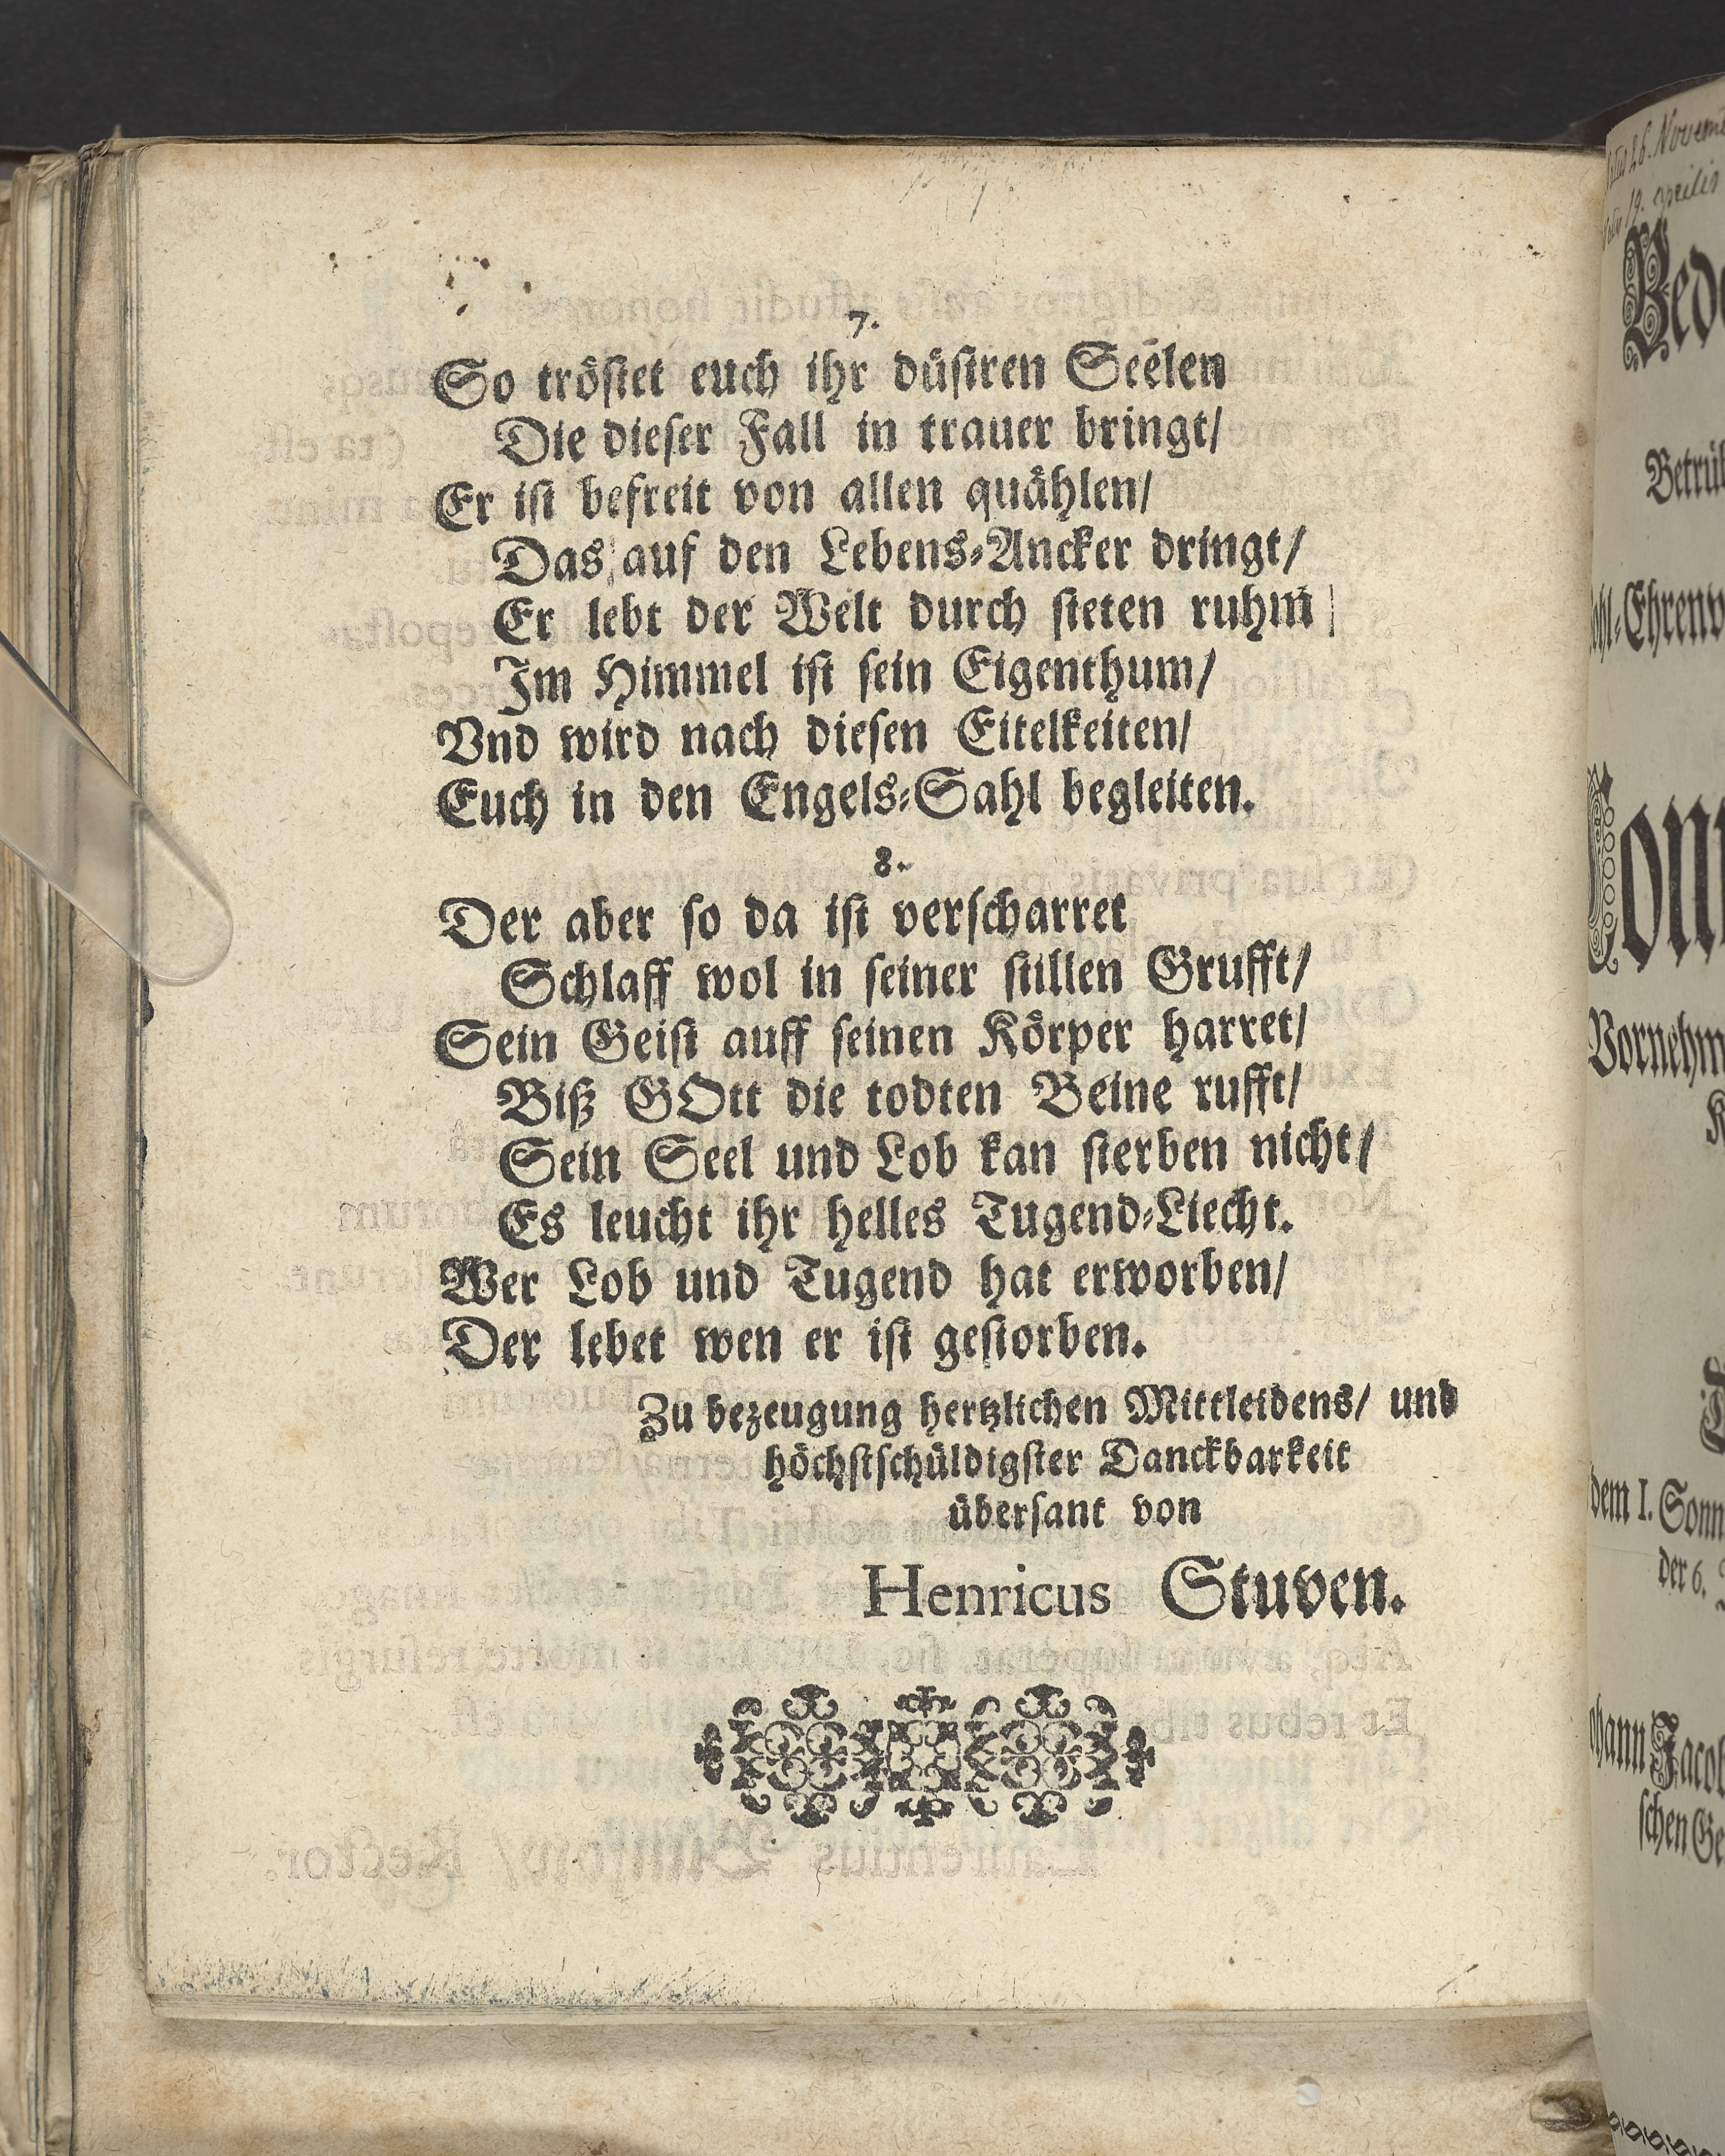 7.
So tröstet euch ihr düstren Seelen
Die dieser Fall in trauer bringt/
Er ist befreit von allen quählen/
Das auf den Lebens-Ancker dringt/
Er lebt der Welt durch steten ruhm
Im Himmel ist sein Eigenthum/
Vnd wird nach diesen Eitelkeiten/
Euch in den Engels-Sahl begleiten.
8.
Der aber so da ist verscharret
Schlaff wol in seiner stillen Grufft/
Sein Geist auff seinen Körper harret/
Biß GOtt die todten Beine rufft/
Sein Seel und Lob kan sterben nicht/
Es leucht ihr helles Tugend-Liecht.
Wer Lob und Tugend hat erworben/
Der lebet wen er ist gestorben.
Zu bezeugung hertzlichen Mittleidens/ und
höchstschüldigster Danckbarkeit
übersant von
Henricus Stuven.
26. Novem
19.
Betrüb
Ehrenv
Vornehm
dem I. Sonn
der 6.
Jacob
schen Ge